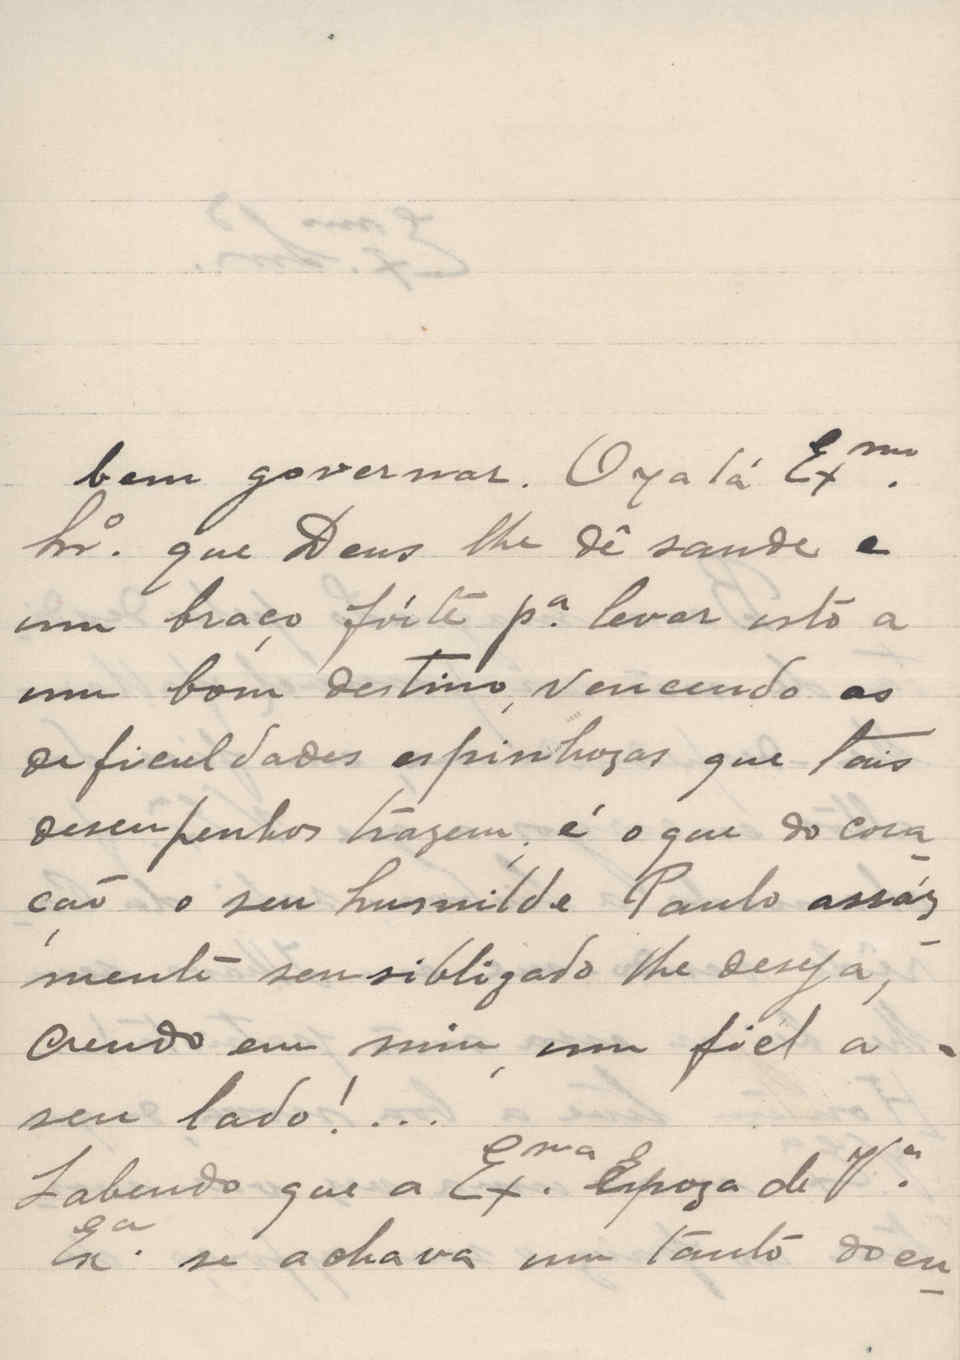 bem governar. Oyalá Exmo.
Snr. que Deus lhe dê saude e
um braço fórte pª. levar isto a
um bom destino, vencendo as
deficuldades espinhozas que tais
desenpenhos trazem, é o que do cora
ção o seu humilde Paulo assáz
mente sensibligado lhe deseja,
crendo em mim, um fiel a
seu lado!...
Sabendo que a Exma. Espoza de Vª.
Exª. se achava um tanto doen